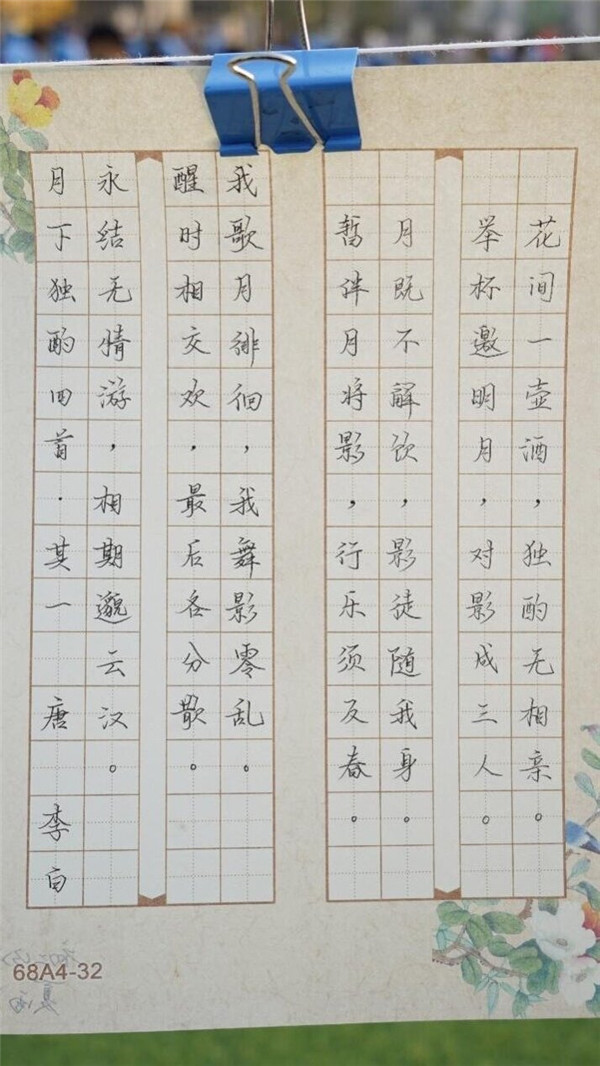 花间一壶酒，独酌无相亲。
举杯邀明月，对影成三人。
月既不解饮，影徒随我身。
暂伴月将影，行乐须及春。
我歌月徘徊，我舞影零乱。
醒时相交欢，最后各分散。
永结无情游，相期邈云汉。
月下独酌四首·其一 唐 李白
68A4-32